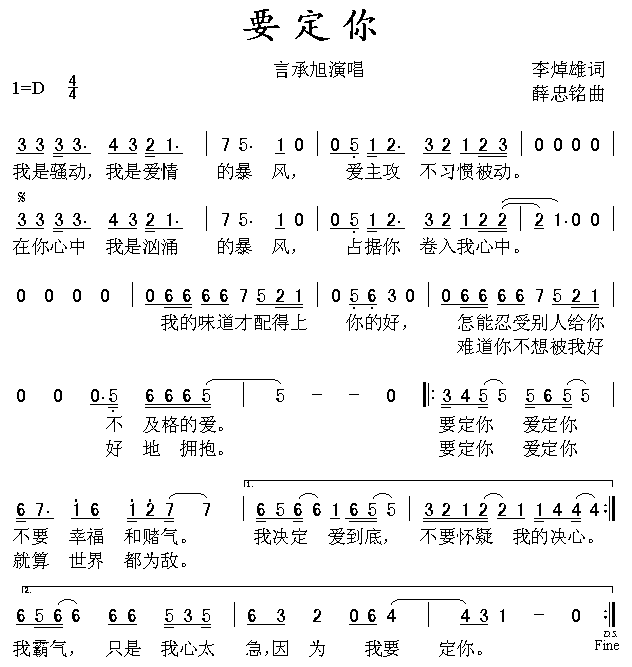 要定你
言承旭演唱 李焯雄词
1=D 4/4 薛忠铭曲
3 3 3 3· 4 3 2 1· | 7 5· 1 0 | 0 5 1 2· 3 2 1 2 3 | 0 0 0 0 |
我是骚动，我是爱情 的暴 风， 爱主攻 不习惯被动。
3 3 3 3· 4 3 2 1· | 7 5· 1 0 | 0 5 1 2· 3 2 1 2 2 | 2 1·0 0 |
在你心中 我是汹涌 的暴 风， 占据你 卷入我心中。
0 0 0 0 | 0 6 6 6 6 7 5 2 1 | 0 5·6 3 0 | 0 6 6 6 6 7 5 2 1 |
我的味道才配得上 你的好， 怎能忍受别人给你
难道你不想被我好
0 0 0·5 6 6 6 5 | 5 - - 0 ‖: 3 4 5 5 5 6 5 5 |
不 及格的爱。 要定你 爱定你
好 地 拥抱。 要定你 爱定你
1.
6 7· 1 6 1 2 7 7 | 6 5 6 6 1 6 5 5 | 3 2 1 2 2 1 1 4 4 4 :‖
不要 幸福 和赌气。 我决定 爱到底， 不要怀疑 我的决心。
就算 世界 都为敌。
2.
6 5 6 6 6 6 5 3 5 | 6 3 2 0 6 4 | 4 3 1 - 0 :‖
D.S.
我霸气， 只是 我心太 急，因 为 我要 定你。 Fine